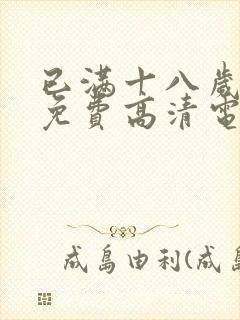 已满十八歲
免費高清電
成島由利(成島